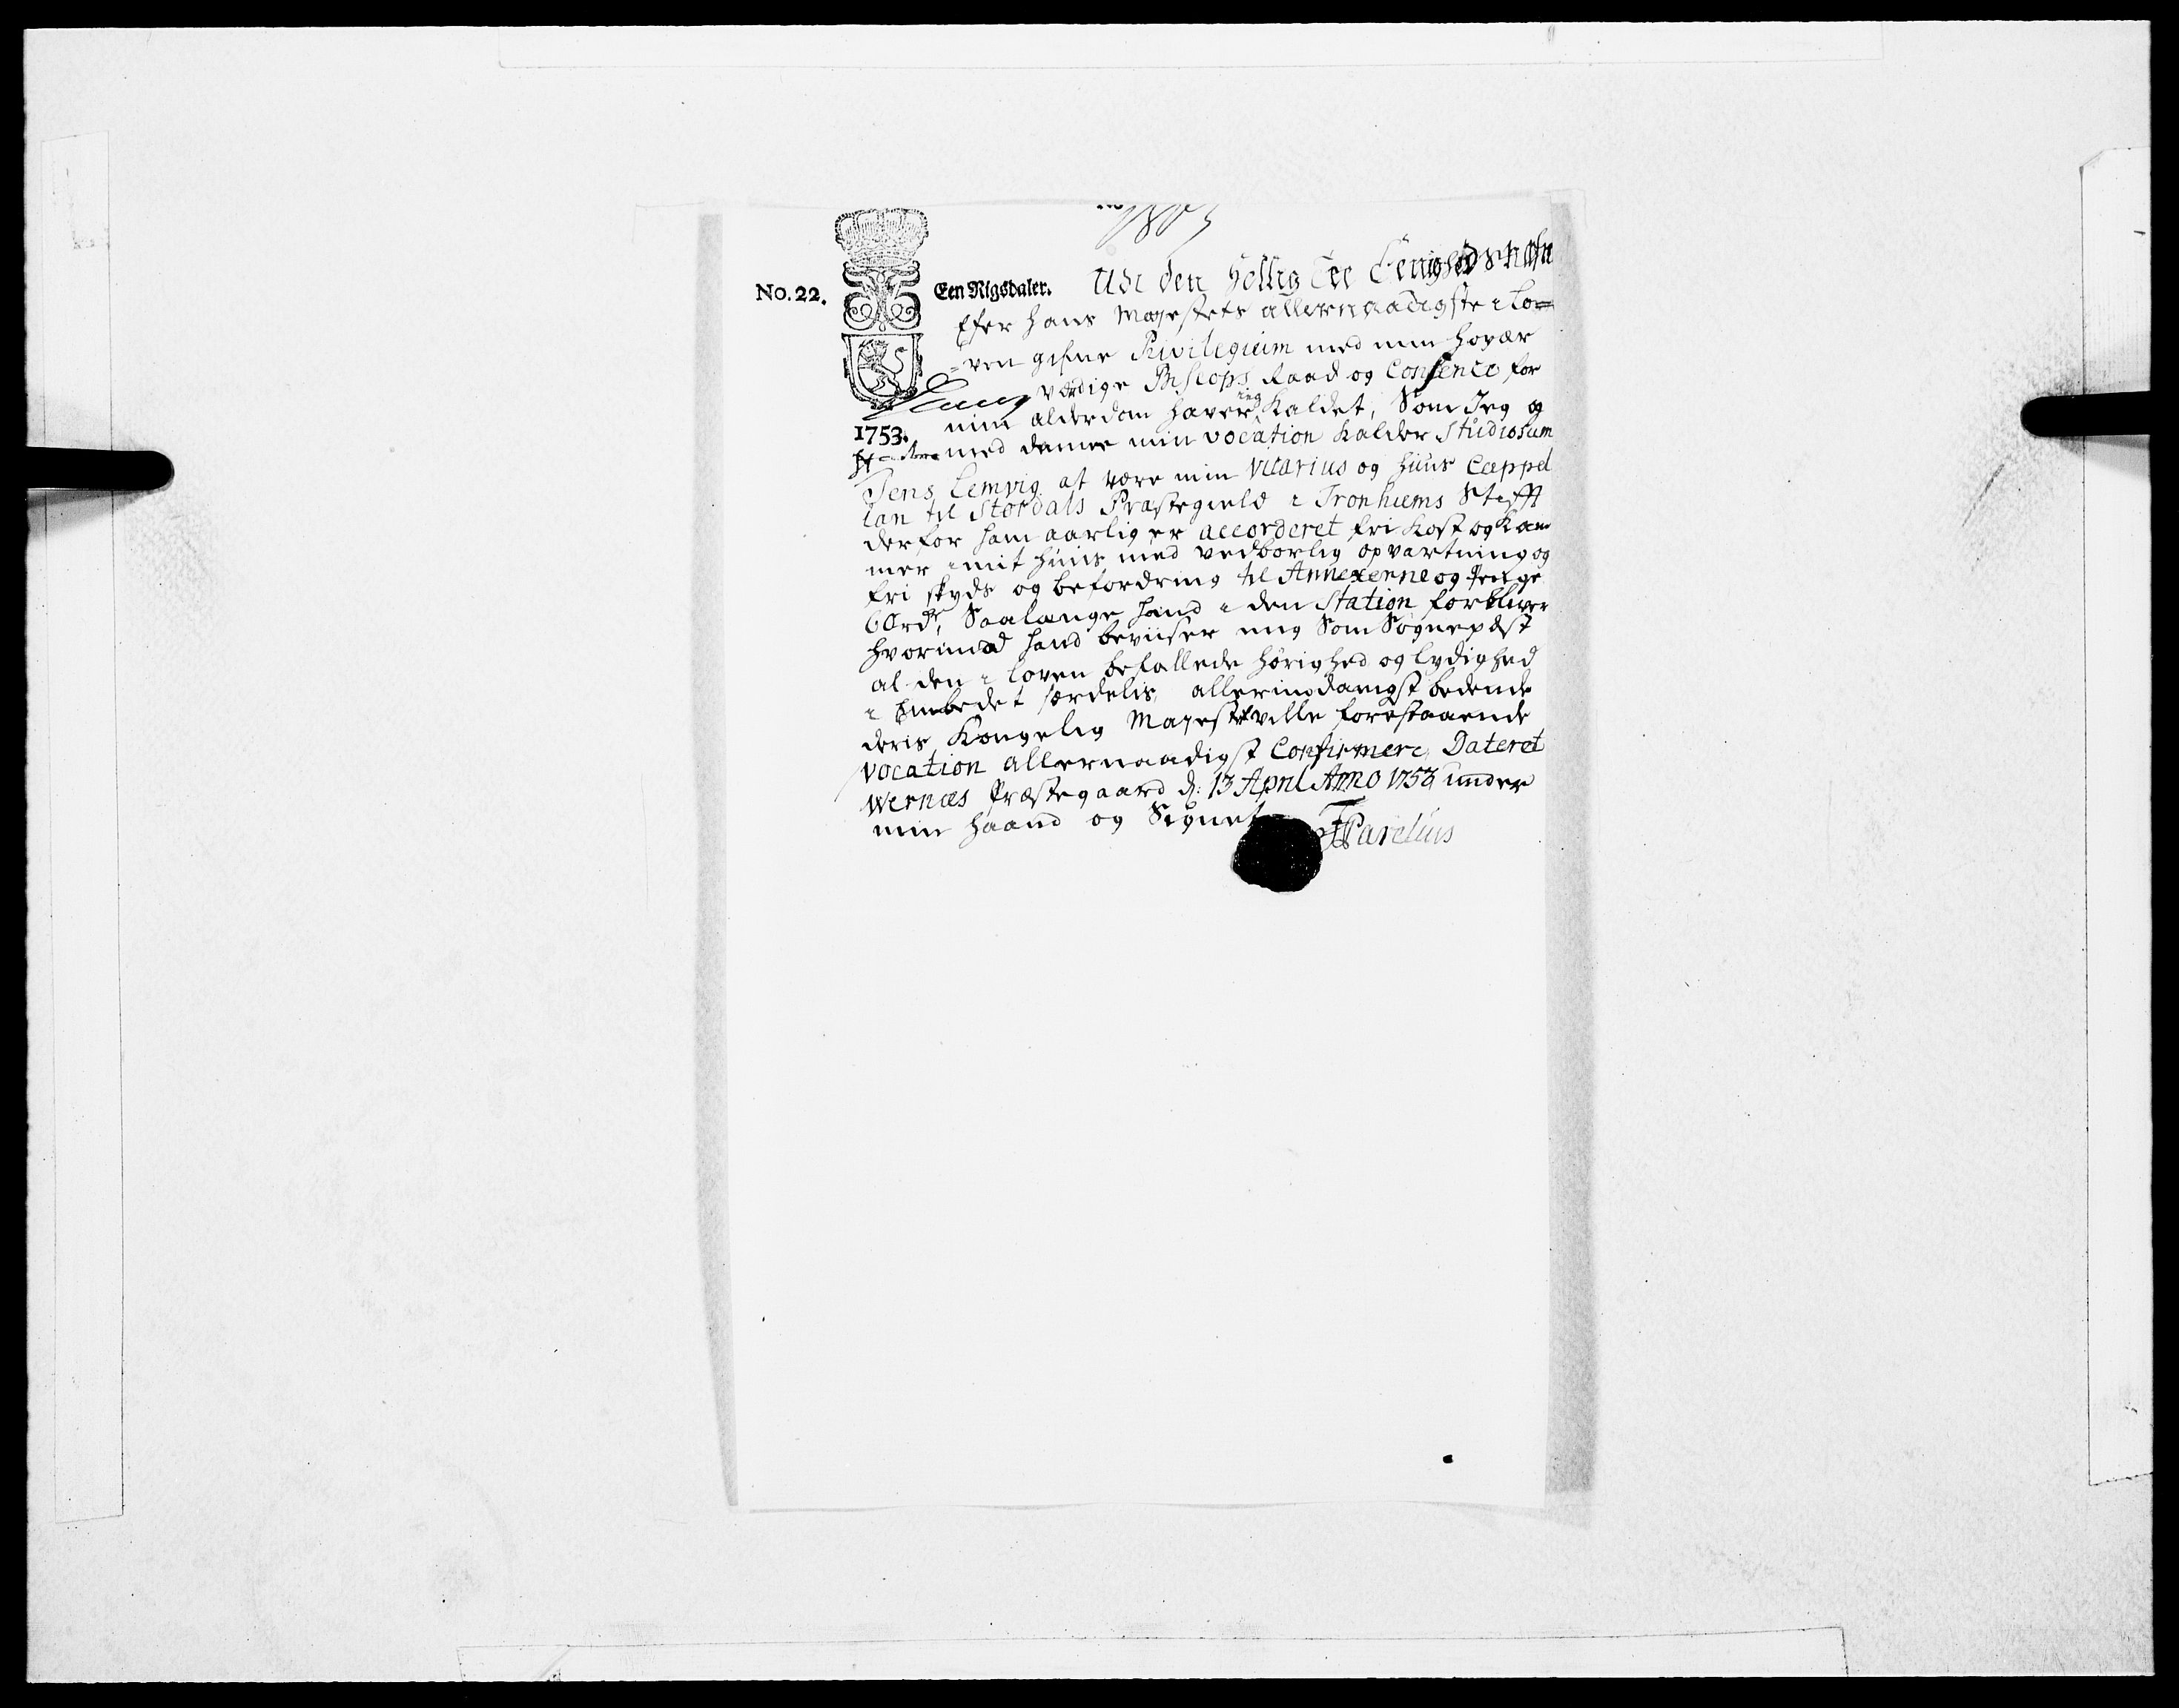 No. 22.
Een Rigsdaler.
1753.
Udi den Hellig Tre Eenigheds Nafn
Efter Hans Mayestets allernaadigste i Lo=
=ven gifne Privilegium med min Høyær
værdige Biskops Raad og Consence for
min alderdom haver ieg Kaldet, Som Jeg og
med denne min vocation Kalder Studiosum
Jens Lemvig at være min Vicarius og Huus Cappel
lan til Stordals Præstegield i Tronhiems Stifft
derfor ham aarlig er accorderet fri Kost og Kam
mer i mit Huus med vedbørlig opvartning og
fri skyds og befordring til Annexerne og Penge
60rdr, Saalænge Hand i den Station forbliver
hvorimod Hand beviiser mig Som Sognepræst
al den i Loven befallede hørighed og lydighed
i Embedet særdelis, allerunderdanigst bedende
deris Kongelig Mayestet ville forestaaende
vocation allernaadigst Confirmere, Dateret
Wernæs Præstegaard d: 13 April Anno 1753 under
min Haand og Signet
Parelius